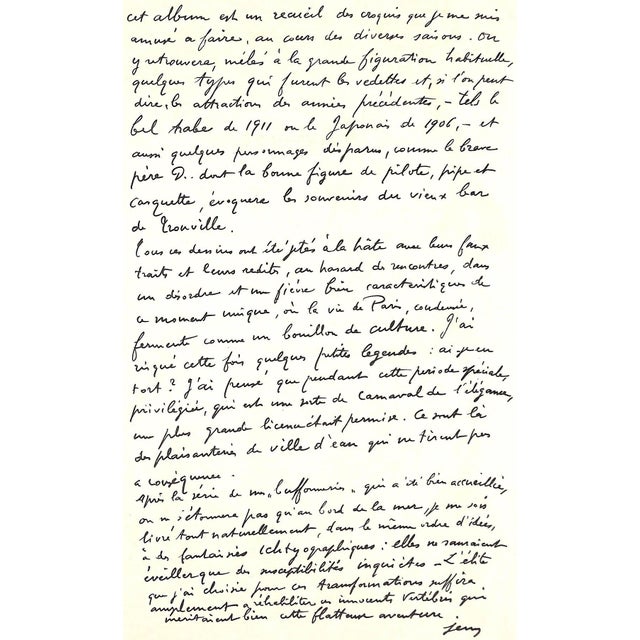 cet album est un recueil des croquis que je me suis
amusé a faire, au cours des diverses saisons. On
y retrouvera, mêlés à la grande figuration habituelle,
quelques types qui furent les vedettes et, si l'on peut
dire, les attractions des années précédentes, - tels le
bel arabe de 1911 ou le Japonais de 1906, - et
aussi quelques personnages disparus, comme le brave
père D.. dont la bonne figure de pilote, pipe et
casquette, évoquera les souvenirs du vieux bar
de Trouville.
Tous ces dessins ont été jetés à la hâte avec leurs faux
traits et leurs redites, au hasard des rencontres, dans
un désordre et une fièvre bien caractéristiques de
ce moment unique, où la vie de Paris, condensée,
fermente comme un bouillon de culture. J'ai
risqué cette fois quelques petites légendes : ai-je eu
tort ? J'ai pensé que pendant cette periode spéciale,
privilégiée, qui est une sorte de Carnaval de l'élégance,
une plus grande licence était permise. Ce sont là
des plaisanteries de ville d'eau qui ne tirent pas
a conséquence.
Après la série de mes "bouffonneries" qui a été bien accueillie,
on ne s'étonnera pas qu'au bord de la mer, je me sois
livré tout naturellement, dans le même ordre d'idées,
à des fantaisies Ichtyographiques : elles ne sauraient
éveiller que des susceptibilités inquiètes - L'élite
que j'ai choisie pour ces transformations suffira
amplement a réhabiliter ces innocents vertébrés qui
méritaient bien cette flatteuse aventure.
Sem